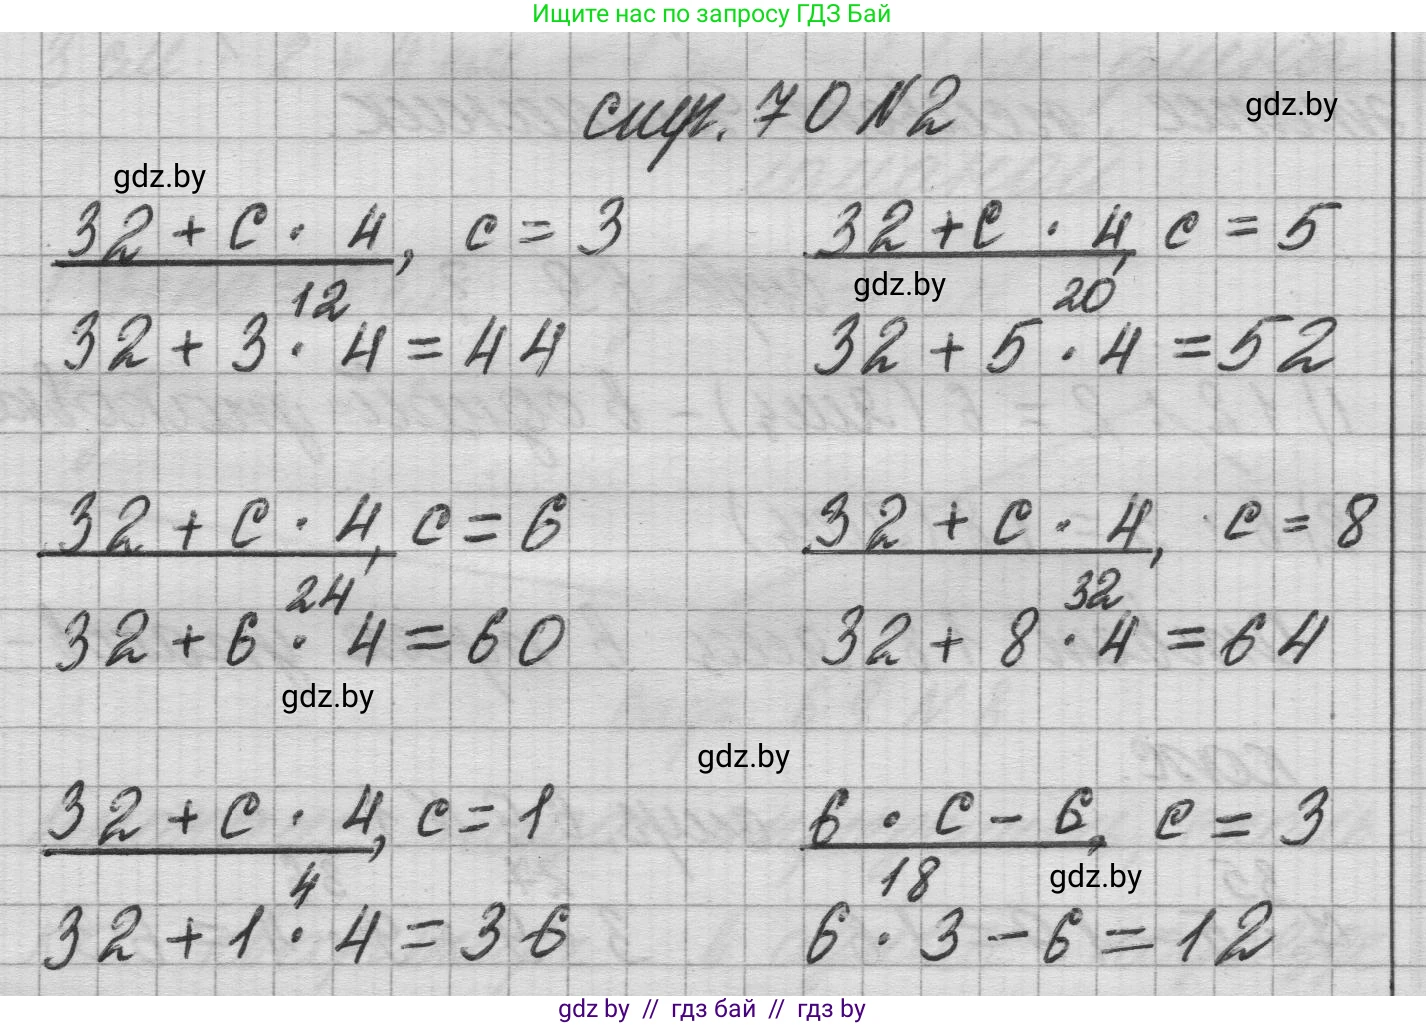 Ищите нас по запросу ГДЗ Бай
стр. 70 №2
gdz.by
gdz.by
32 + c · 4, c = 3
32 + c · 4, c = 5
gdz.by
12
20
32 + 3 · 4 = 44
32 + 5 · 4 = 52
32 + c · 4, c = 6
32 + c · 4, c = 8
24
32
32 + 6 · 4 = 60
32 + 8 · 4 = 64
gdz.by
gdz.by
32 + c · 4, c = 1
6 · c - 6, c = 3
4
18
gdz.by
32 + 1 · 4 = 36
6 · 3 - 6 = 12
gdz by // гдз бай // гдз by